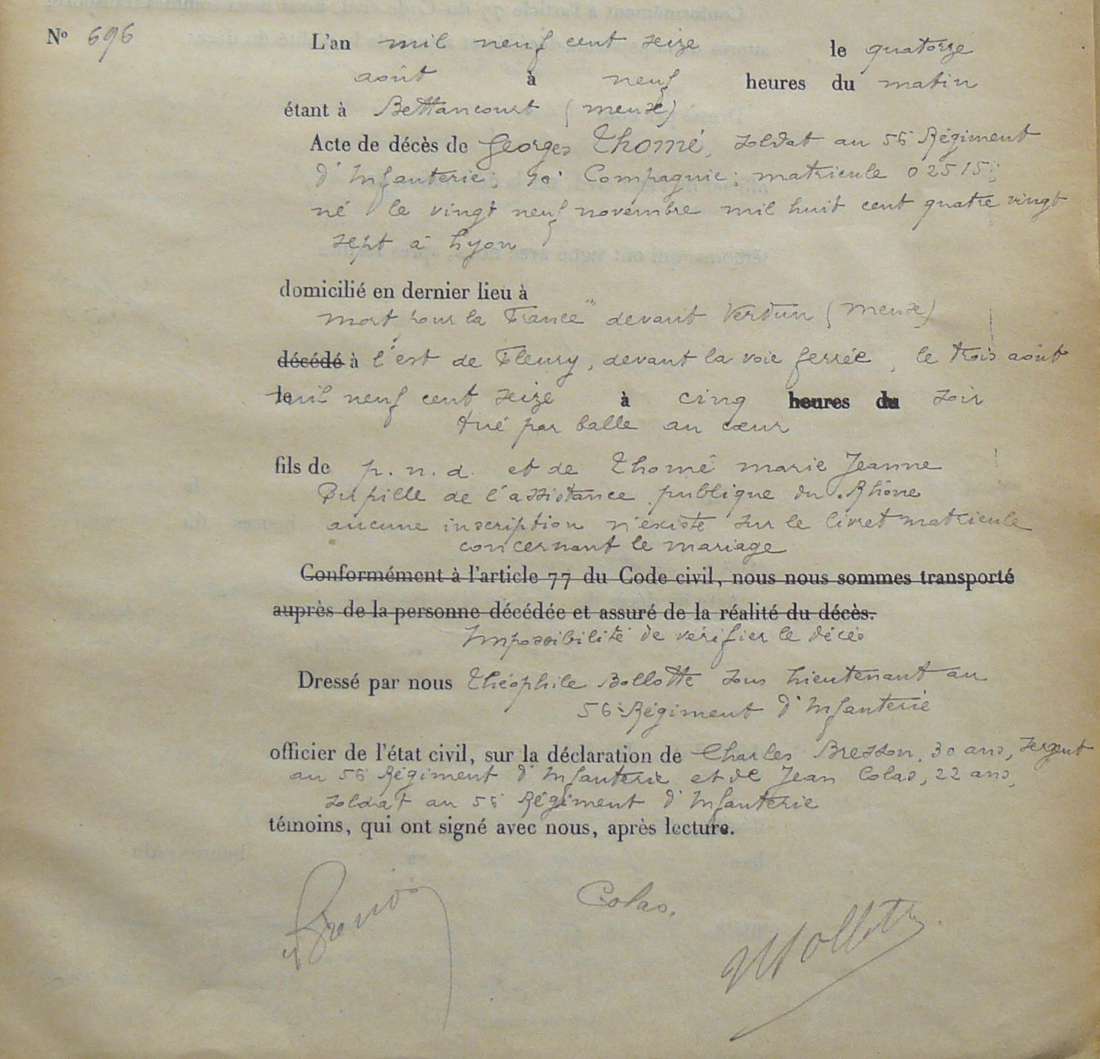 N° 696
L'an mil neuf cent seize le quatorze
août à neuf heures du matin
étant à Bettancourt (meuse)
Acte de décès de Georges Thomé, soldat au 56e Régiment
d'Infanterie; Compagnie; matricule 02515;
né le vingt neuf novembre mil huit cent quatre vingt
sept à Lyon
domicilié en dernier lieu à
mort pour la France" devant Verdun (meuse)
décédé à l'est de Fleury, devant la voie ferrée, le trois août
le mil neuf cent seize à cinq heures du soir
tué par balle au cœur
fils de p. n. d. et de Thomé marie Jeanne
Pupille de l'assistance publique du Rhône
aucune inscription n'existe sur le livret matricule
concernant le mariage
Conformément à l'article 77 du Code civil, nous nous sommes transporté
auprès de la personne décédée et assuré de la réalité du décès.
Impossibilité de vérifier le décès
Dressé par nous Théophile Bollotte sous lieutenant au
56e Régiment d'Infanterie
officier de l'état civil, sur la déclaration de Charles Bresson, 30 ans, sergent
au 56e Régiment d'Infanterie et de Jean Colas, 22 ans,
soldat au 56e Régiment d'Infanterie
témoins, qui ont signé avec nous, après lecture.
Colas.